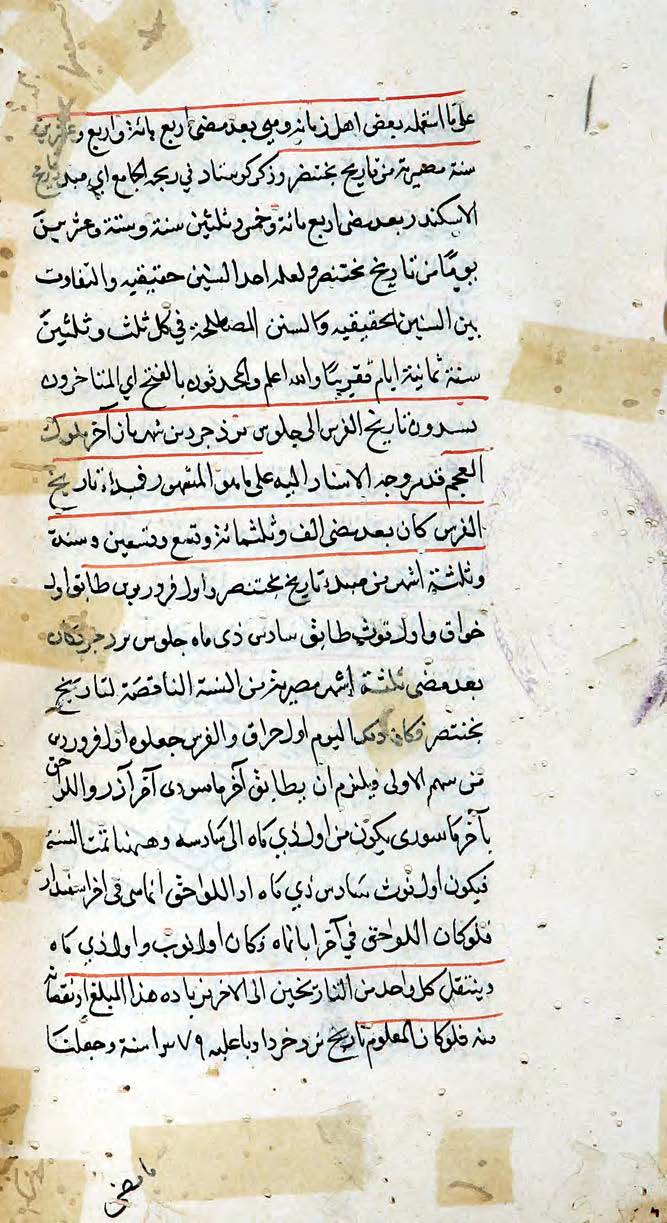 على ما استعمله بعض اهل زمانه ورومى بعد مضى اربع مائة واربع وعشرين
سنة مصرية من تاريخ بختنصر وذكر كوسناد في زيجه الجامع اي مبدء تاريخ
الاسكندر بعد مضى اربع مائة وخمس وثلثين سنة وستة وعشرين
يوما من تاريخ بختنصر ولعله اخذ السنين حقيقيه والتفاوت
بين السنين الحقيقيه والسنن المصطلحة في كل ثلث وثلثين
سنة ثمانية ايام تقريبا والله اعلم والمحدثون بالفتح اي المتاخرون
يسندون تاريخ الفرس الى جلوس يزدجرد بن شهريار آخر ملوك
العجم قد مر وجه الاسناد اليه على ما هو المشهور فمبداء تاريخ
الفرس كان بعد مضى الف وثلثمائة وتسع وتسعين وسنة
وثلثة اشهر من مبدء تاريخ بختنصر واول فروردين طابق اول
خواق واول توت طابق سادس دى ماه جلوس يزدجرد كان
بعد مضى ثلثة اشهر مصرية من السنة الناقصة لتاريخ
بختنصر فكان ذلك اليوم اول حراق والفرس جعلوه اول فروردى
من سهم الاولى فيلزم ان يطابق آخر ماسورى آخر آذر واللواحق
بآخر ماسورى يكون من اول دي ماه الى سادسه وههنا تمت السنة
فيكون اول توت سادس دي ماه اذ اللواحق انما هى في آخر اسفندار
فلو كان اللواحق في آخر ابانماه وكان اول توت واول دي ماه
وينتقل كل واحد من التاريخين الى الاخر بزياده هذا المبلغ او نقصانه
منه فلو كان المعلوم تاريخ يزدجرد وبا عليه ١٣٧٩ سنة وجعلنا
ما مضى